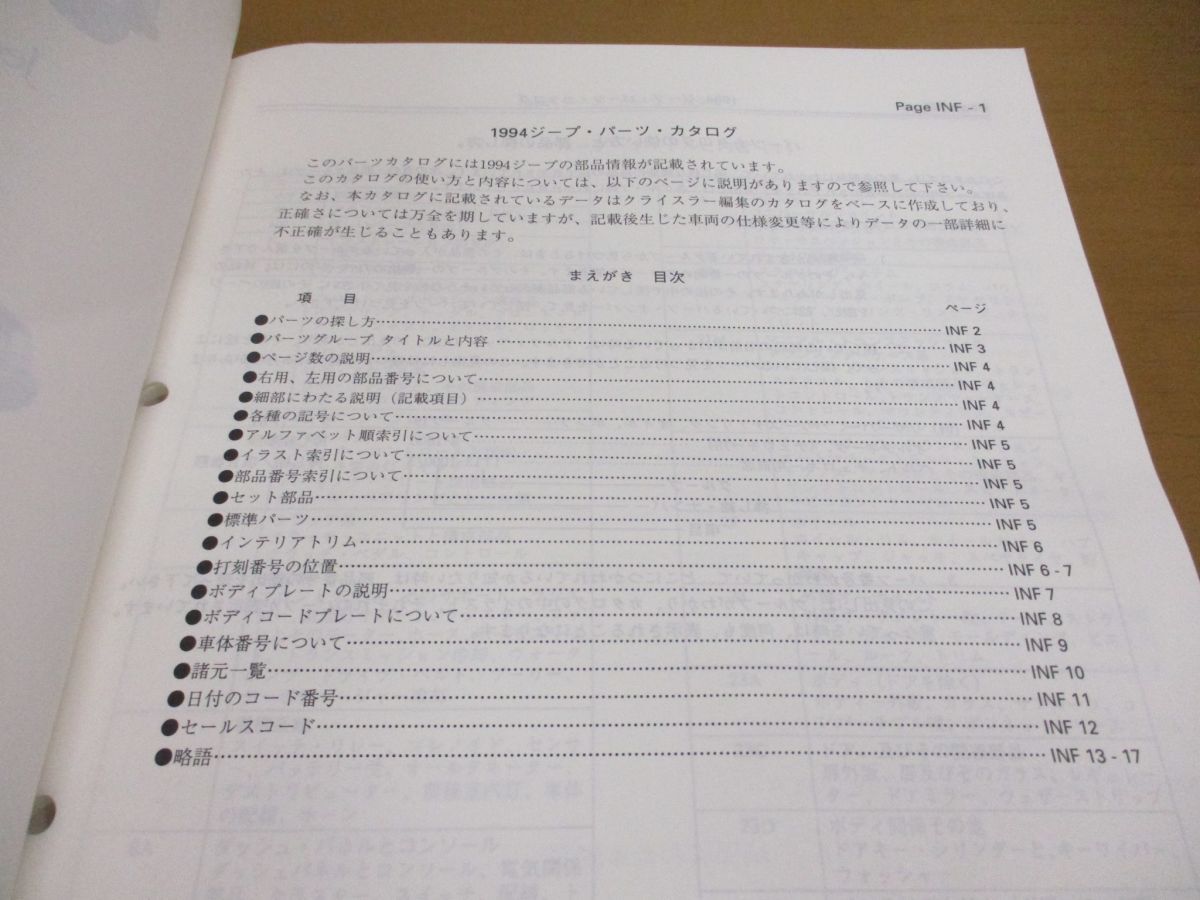 Page INF - 1
1994ジープ・パーツ・カタログ
このパーツカタログには1994ジープの部品情報が記載されています。
このカタログの使い方と内容については、以下のページに説明がありますので参照して下さい。
なお、本カタログに記載されているデータはクライスラー編集のカタログをベースに作成しており、
正確さについては万全を期していますが、記載後生じた車両の仕様変更等によりデータの一部詳細に
不正確が生じることもあります。
まえがき 目次
項 目 ページ
●パーツの探し方 INF 2
●パーツグループ タイトルと内容 INF 3
●ページ数の説明 INF 4
●右用、左用の部品番号について INF 4
●細部にわたる説明(記載項目) INF 4
●各種の記号について INF 4
●アルファベット順索引について INF 5
●イラスト索引について INF 5
●部品番号索引について INF 5
●セット部品 INF 5
●標準パーツ INF 5
●インテリアトリム INF 6
●打刻番号の位置 INF 6 - 7
●ボディプレートの説明 INF 7
●ボディコードプレートについて INF 8
●車体番号について INF 9
●諸元一覧 INF 10
●日付のコード番号 INF 11
●セールスコード INF 12
●略語 INF 13 - 17